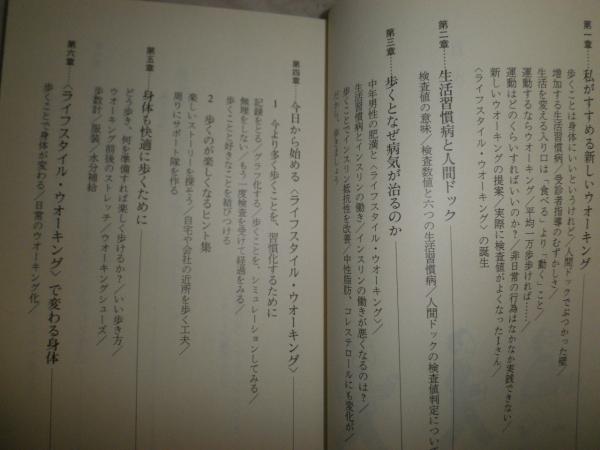 第一章──私がすすめる新しいウオーキング
歩くことは身体にいいというけれど／人間ドックでぶつかった壁／
増加する生活習慣病、受診者指導のむずかしさ／
生活を変える入り口は「食べる」より「動く」こと
運動するならウオーキング／平均一万歩歩ければ……／
運動はどのくらいすればいいのか？／非日常の行為はなかなか実践できない／
新しいウオーキングの提案／実際に検査値がよくなったIさん／
〈ライフスタイル・ウオーキング〉の誕生
第二章──生活習慣病と人間ドック
検査値の意味／検査数値と六つの生活習慣病／人間ドックの検査値判定につい
第三章──歩くとなぜ病気が治るのか
中年男性の肥満と〈ライフスタイル・ウオーキング〉／
生活習慣病とインスリンの働き／インスリンの働きが悪くなるのは？／
歩くことでインスリン抵抗性を改善／中性脂肪、コレステロールにも変化が／
だから、歩きましょう
第四章──今日から始める〈ライフスタイル・ウオーキング〉
1 今より多く歩くことを、習慣化するために
記録をとる／グラフ化する／歩くことを、シミュレーションしてみる／
無理をしない／もう一度検査を受けて経過をみる／
歩くことと好きなことを結びつける
2 歩くのが楽しくなるヒント集
楽しいストーリーを探そう／自宅や会社の近所を歩く工夫／
周りにサポート隊を作る
第五章──身体も快適に歩くために
どう歩き、何を準備すれば楽しく歩けるか？／いい歩き方／
ウオーキング前後のストレッチ／ウオーキングシューズ／
歩数計／服装／水分補給
第六章──〈ライフスタイル・ウオーキング〉で変わる身体
歩くことで身体が変わる／日常のウオーキング化／